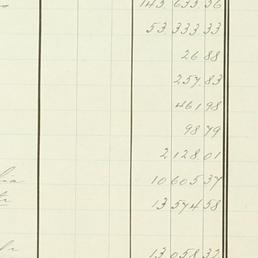 143 633 36
53 333 33
26 88
257 83
461 98
98 79
2 128 01
10 605 37
13 574 58
13 058 32